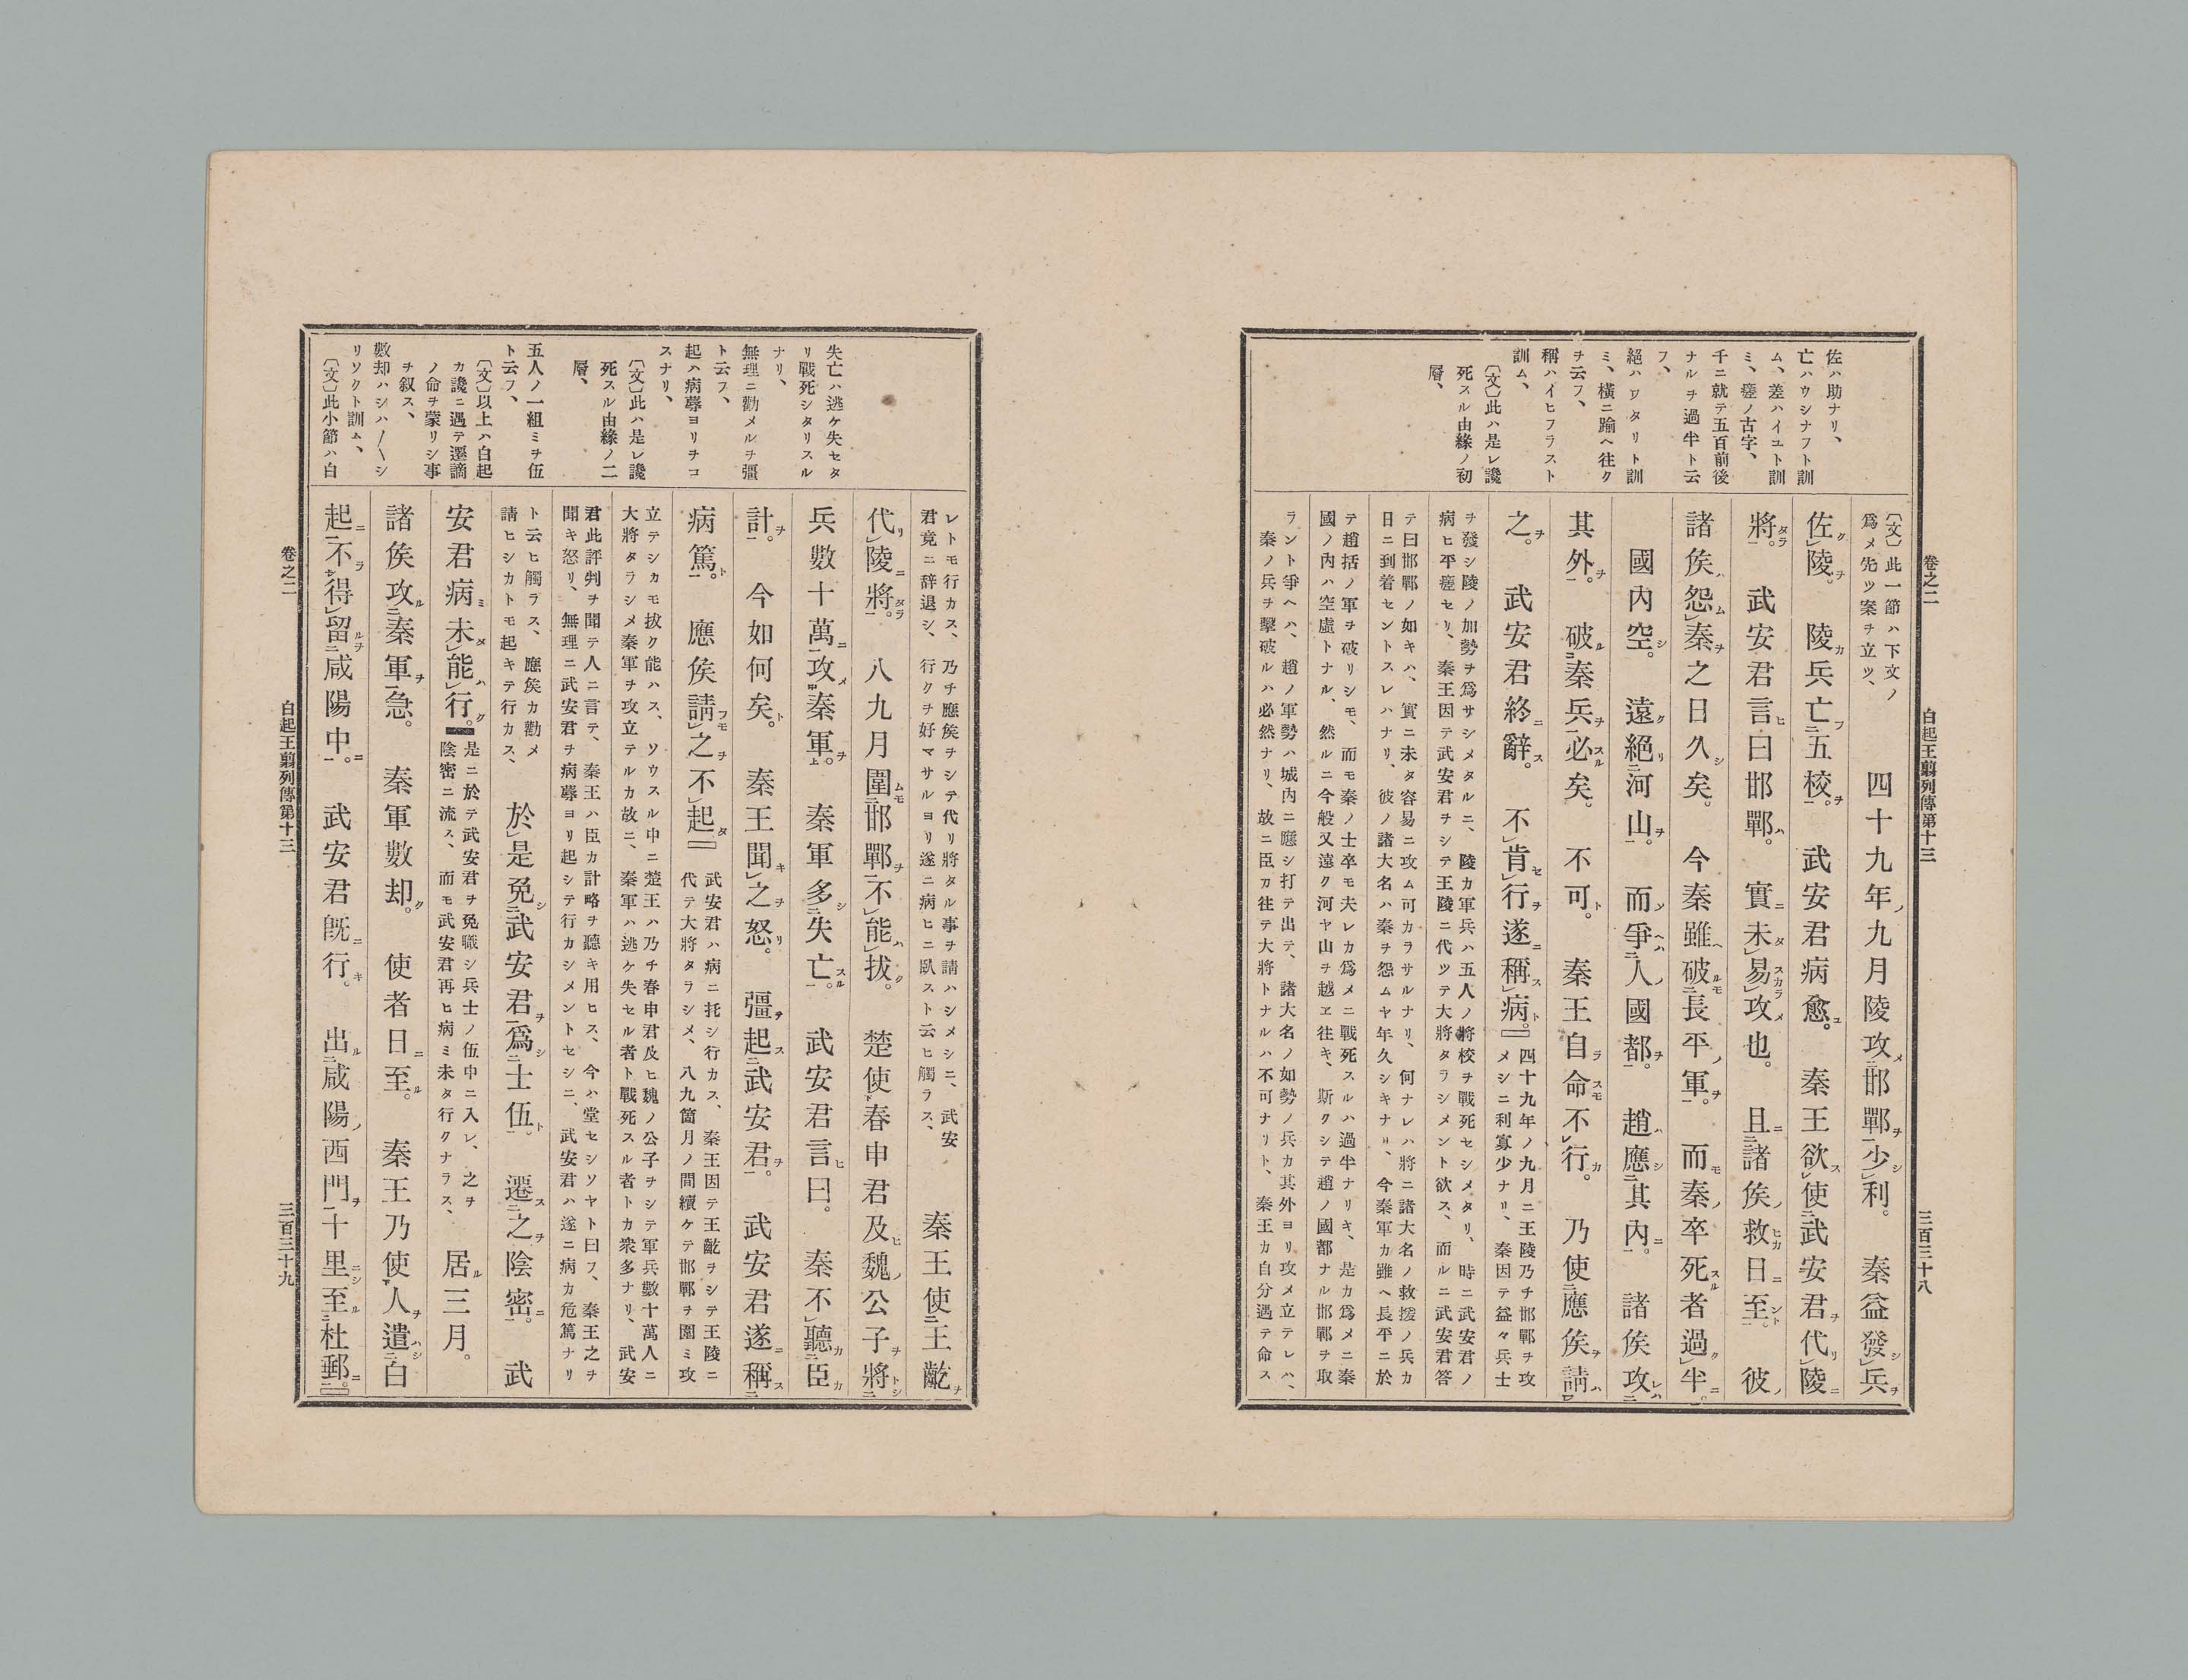 卷之二
白起王翦列傳第十三
三百三十八
佐ハ助ナリ、
亡ハウシナフト訓
ム、差ハイユト訓
ミ、瘥ノ古字、
千ニ就テ五百前後
ナルヲ過半ト云
フ、
絕ハワタリト訓
ミ、橫ニ踰ヘ往ク
ヲ云フ、
稱ハイヒフラスト
訓ム、
〔文〕此ハ是レ讒
死スル由緣ノ初
層、
〔文〕此一節ハ下文ノ
爲メ先ツ案ヲ立ツ、
四十九年九月陵攻邯鄲少利。秦益發兵
佐陵。陵兵亡五校。武安君病愈。秦王欲使武安君代陵
將。武安君言曰邯鄲。實未易攻也。且諸侯救日至。彼
諸侯怨秦之日久矣。今秦雖破長平軍。而秦卒死者過半。
國內空。遠絕河山。而爭人國都。趙應其內。諸侯攻
其外。破秦兵必矣。不可。秦王自命不行。乃使應侯請
之。武安君終辭。不肯行遂稱病。
四十九年ノ九月ニ王陵乃チ邯鄲ヲ攻
メシニ利寡少ナリ、秦因テ益々兵士
ヲ發シ陵ノ加勢ヲ爲サシメタルニ、陵カ軍兵ハ五人ノ將校ヲ戰死セシメタリ、時ニ武安君ノ
病ヒ平瘥セリ、秦王因テ武安君ヲシテ王陵ニ代ツテ大將タラシメント欲ス、而ルニ武安君答
テ曰邯鄲ノ如キハ、實ニ未タ容易ニ攻ム可カラサルナリ、何ナレハ將ニ諸大名ノ救援ノ兵カ
日ニ到着セントスレハナリ、彼ノ諸大名ハ秦ヲ怨ムヤ年久シキナリ、今秦軍カ雖ヘ長平ニ於
テ趙括ノ軍ヲ破リシモ、而モ秦ノ士卒モ夫レカ爲メニ戰死スルハ過半ナリキ、是カ爲メニ秦
國ノ內ハ空虛トナル、然ルニ今般又遠ク河ヤ山ヲ越ヱ往キ、斯クシテ趙ノ國都ナル邯鄲ヲ取
ラント爭ヘハ、趙ノ軍勢ハ城內ニ應シ打テ出テ、諸大名ノ如勢ノ兵カ其外ヨリ攻メ立テレハ、
秦ノ兵ヲ擊破ルハ必然ナリ、故ニ臣カ往テ大將トナルハ不可ナリト、秦王カ自分遇テ命ス
失亡ハ逃ケ失セタ
リ戰死シタリスル
ナリ、
無理ニ勸メルヲ彊
ト云フ、
起ハ病蓐ヨリヲコ
スナリ、
〔文〕此ハ是レ讒
死スル由緣ノ二
層、
五人ノ一組ミヲ伍
ト云フ、
〔文〕以上ハ白起
カ讒ニ遇テ遷謫
ノ命ヲ蒙リシ事
ヲ叙ス、
數却ハシハ〱シ
リソクト訓ム、
〔文〕此小節ハ白
レトモ行カス、乃チ應侯ヲシテ代リ將タル事ヲ請ハシメシニ、武安
君竟ニ辞退シ、行クヲ好マサルヨリ遂ニ病ヒニ臥スト云ヒ觸ラス、
秦王使王齕
代陵將。八九月圍邯鄲不能拔。楚使春申君及魏公子將
兵數十萬攻秦軍。秦軍多失亡。武安君言曰。秦不聽臣
計。今如何矣。秦王聞之怒。彊起武安君。武安君遂稱
病篤。應侯請之不起
武安君ハ病ニ托シ行カス、秦王因テ王齕ヲシテ王陵ニ
代テ大將タラシメ、八九箇月ノ間續ケテ邯鄲ヲ圍ミ攻
立テシカモ拔ク能ハス、ソウスル中ニ楚王ハ乃チ春申君及ヒ魏ノ公子ヲシテ軍兵數十萬人ニ
大將タラシメ秦軍ヲ攻立テルカ故ニ、秦軍ハ逃ケ失セル者ト戰死スル者トカ衆多ナリ、武安
君此評判ヲ聞テ人ニ言テ、秦王ハ臣カ計略ヲ聽キ用ヒス、今ハ堂セシソヤト曰フ、秦王之ヲ
聞キ怒リ、無理ニ武安君ヲ病蓐ヨリ起シテ行カシメントセシニ、武安君ハ遂ニ病カ危篤ナリ
ト云ヒ觸ラス、應侯カ勸メ
請ヒシカトモ起キテ行カス、
於是免武安君爲士伍。遷之陰密。武
安君病未能行。
是ニ於テ武安君ヲ免職シ兵士ノ伍中ニ入レ、之ヲ
陰密ニ流ス、而モ武安君再ヒ病ミ未タ行クナラス、
居三月。
諸侯攻秦軍急。秦軍數却。使者日至。秦王乃使人遣白
起不得留咸陽中。武安君既行。出咸陽西門十里至杜郵。
卷之二
白起王翦列傳第十三
三百三十九